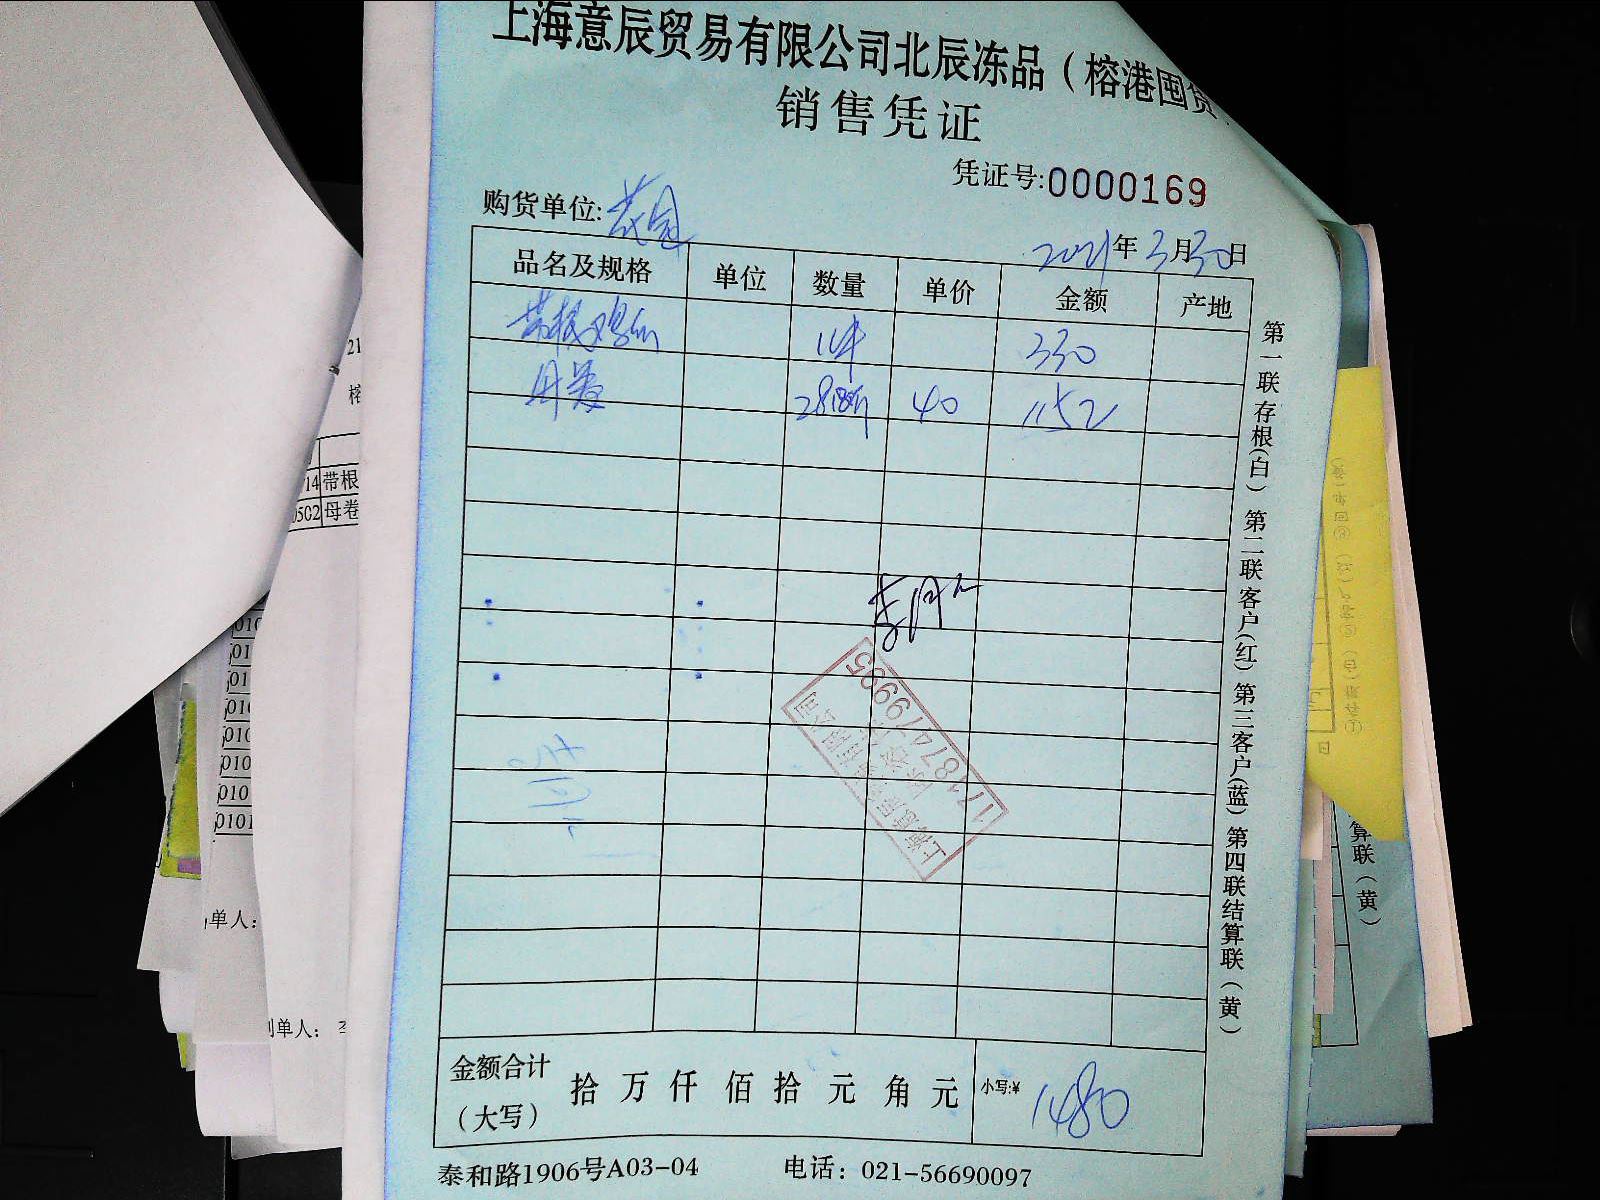 上海意辰贸易有限公司北辰冻品（榕港囤货
销售凭证
凭证号:0000169
购货单位:
2021年3月30日
品名及规格 单位 数量 单价 金额 产地
带根鸡 1件 330
母卷 28.8斤 40 1152
1480
金额合计（大写） 拾 万 仟 佰 拾 元 角 元 小写:¥
泰和路1906号A03-04 电话：021-56690097
第一联存根(白) 第二联客户(红) 第三客户(蓝) 第四联结算联(黄)
17487479995
21
榕
14 带根
0502 母卷
010
010
010
0101
单人：
制单人：
算联(黄)
日